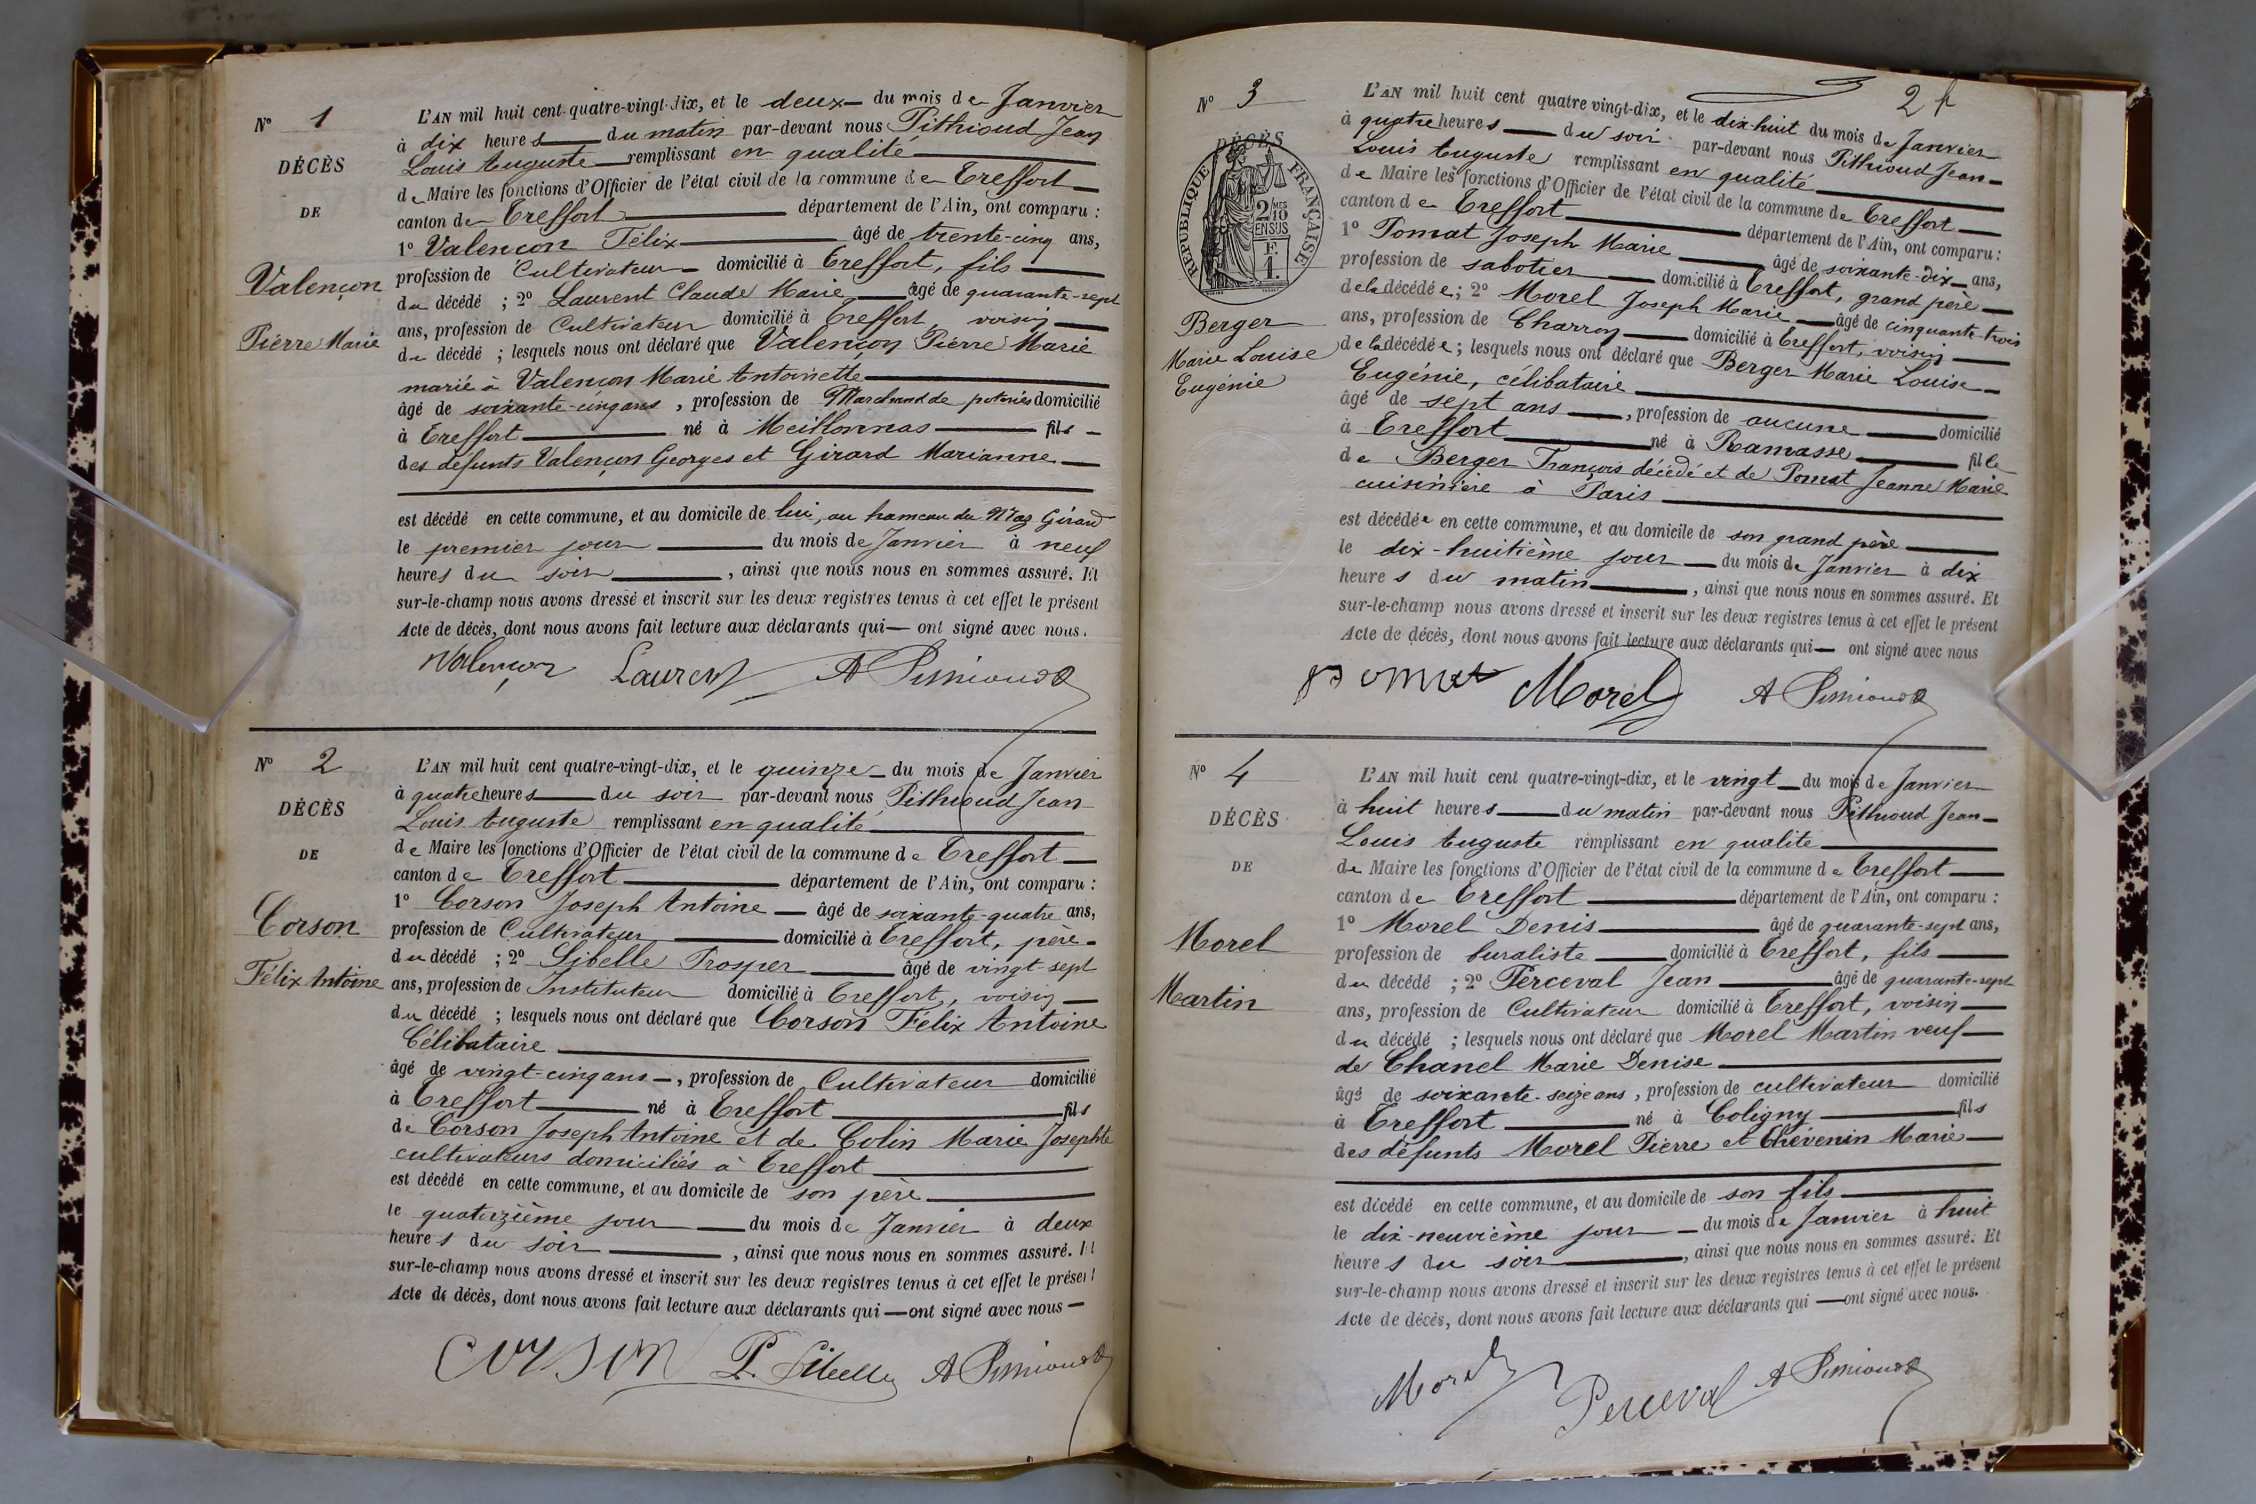 N° 1
DÉCÈS
DE
Valençon
Pierre Marie
L'AN mil huit cent quatre-vingt-dix, et le deux du mois de Janvier
à dix heures du matin par-devant nous Pithioud Jean
Louis Auguste remplissant en qualité
de Maire les fonctions d'Officier de l'état civil de la commune de Treffort
canton de Treffort département de l'Ain, ont comparu :
1° Valençon Félix âgé de trente-cinq ans,
profession de Cultivateur domicilié à Treffort, fils
du décédé ; 2° Laurent Claude Marie âgé de quarante-sept
ans, profession de Cultivateur domicilié à Treffort, voisin
du décédé ; lesquels nous ont déclaré que Valençon Pierre Marie
marié à Valençon Marie Antoinette
âgé de soixante-cinq ans, profession de Marchand de poteries domicilié
à Treffort né à Meillonnas fils
des défunts Valençon Georges et Girard Marianne
est décédé en cette commune, et au domicile de lui, au hameau du Mas Girard
le premier jour du mois de Janvier à neuf
heures du soir, ainsi que nous nous en sommes assuré. Et
sur-le-champ nous avons dressé et inscrit sur les deux registres tenus à cet effet le présent
Acte de décès, dont nous avons fait lecture aux déclarants qui — ont signé avec nous.
Valençon Laurent A Pithioud
N° 2
DÉCÈS
DE
Corson
Félix Antoine
L'AN mil huit cent quatre-vingt-dix, et le quinze du mois de Janvier
à quatre heures du soir par-devant nous Pithioud Jean
Louis Auguste remplissant en qualité
de Maire les fonctions d'Officier de l'état civil de la commune de Treffort
canton de Treffort département de l'Ain, ont comparu :
1° Corson Joseph Antoine âgé de soixante-quatre ans,
profession de Cultivateur domicilié à Treffort, père
du décédé ; 2° Libelle Prosper âgé de vingt-sept
ans, profession de Instituteur domicilié à Treffort, voisin
du décédé ; lesquels nous ont déclaré que Corson Félix Antoine
Célibataire
âgé de vingt-cinq ans, profession de Cultivateur domicilié
à Treffort né à Treffort fils
de Corson Joseph Antoine et de Colin Marie Josephte
cultivateurs domiciliés à Treffort
est décédé en cette commune, et au domicile de son père
le quatorzième jour du mois de Janvier à deux
heures du soir, ainsi que nous nous en sommes assuré. Et
sur-le-champ nous avons dressé et inscrit sur les deux registres tenus à cet effet le présent
Acte de décès, dont nous avons fait lecture aux déclarants qui — ont signé avec nous —
Corson P. Libelle A Pithioud
2
N° 3
DÉCÈS
RÉPUBLIQUE FRANÇAISE
2 MES 10 EN SUS
F. 1.
Berger
Marie Louise
Eugénie
L'AN mil huit cent quatre vingt-dix, et le dix-huit du mois de Janvier
à quatre heures du soir par-devant nous Pithioud Jean
Louis Auguste remplissant en qualité
de Maire les fonctions d'Officier de l'état civil de la commune de Treffort
canton de Treffort département de l'Ain, ont comparu :
1° Pomat Joseph Marie âgé de soixante-dix ans,
profession de sabotier domicilié à Treffort, grand père
de la décédée ; 2° Morel Joseph Marie âgé de cinquante-trois
ans, profession de Charron domicilié à Treffort, voisin
de la décédée ; lesquels nous ont déclaré que Berger Marie Louise
Eugénie, célibataire
âgé de sept ans, profession de aucune domicilié
à Treffort né à Ramasse fille
de Berger François décédé et de Pomat Jeanne Marie
cuisinière à Paris
est décédée en cette commune, et au domicile de son grand père
le dix-huitième jour du mois de Janvier à dix
heures du matin, ainsi que nous nous en sommes assuré. Et
sur-le-champ nous avons dressé et inscrit sur les deux registres tenus à cet effet le présent
Acte de décès, dont nous avons fait lecture aux déclarants qui — ont signé avec nous
pomat Morel A Pithioud
N° 4
DÉCÈS
DE
Morel
Martin
L'AN mil huit cent quatre-vingt-dix, et le vingt du mois de Janvier
à huit heures du matin par-devant nous Pithioud Jean
Louis Auguste remplissant en qualité
de Maire les fonctions d'Officier de l'état civil de la commune de Treffort
canton de Treffort département de l'Ain, ont comparu :
1° Morel Denis âgé de quarante-sept ans,
profession de buraliste domicilié à Treffort, fils
du décédé ; 2° Perceval Jean âgé de quarante-sept
ans, profession de Cultivateur domicilié à Treffort, voisin
du décédé ; lesquels nous ont déclaré que Morel Martin veuf
de Chanel Marie Denise
âgé de soixante-seize ans, profession de cultivateur domicilié
à Treffort né à Coligny fils
des défunts Morel Pierre et Thévenin Marie
est décédé en cette commune, et au domicile de son fils
le dix-neuvième jour du mois de Janvier à huit
heures du soir, ainsi que nous nous en sommes assuré. Et
sur-le-champ nous avons dressé et inscrit sur les deux registres tenus à cet effet le présent
Acte de décès, dont nous avons fait lecture aux déclarants qui — ont signé avec nous.
Morel Perceval A Pithioud